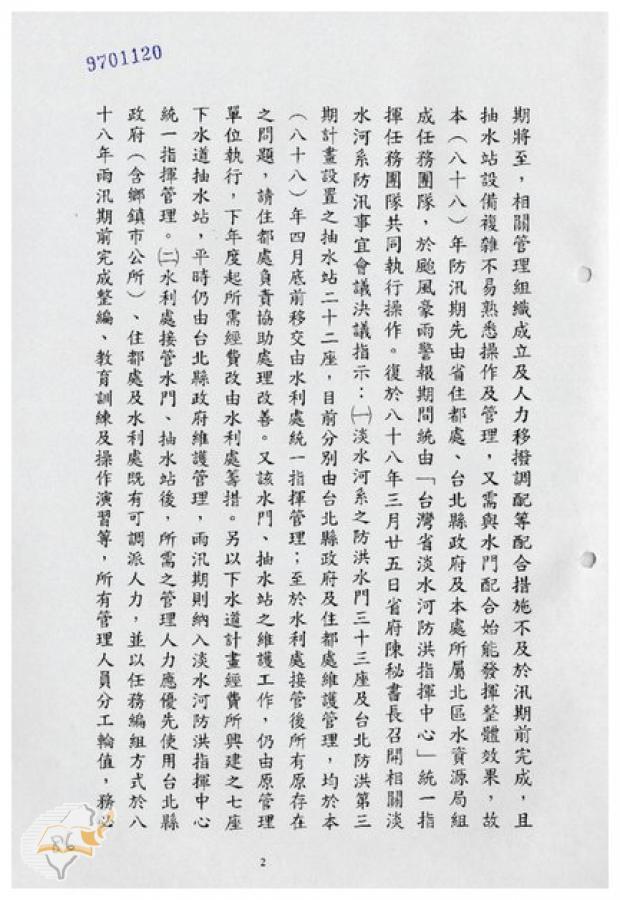 9701120
期將至，相關管理組織成立及人力移撥調配等配合措施不及於汛期前完成，且
抽水站設備複雜不易熟悉操作及管理，又需與水門配合始能發揮整體效果，故
本（八十八）年防汛期先由省住都處、台北縣政府及本處所屬北區水資源局組
成任務團隊，於颱風豪雨警報期間統由「台灣省淡水河防洪指揮中心」統一指
揮任務團隊共同執行操作。復於八十八年三月廿五日省府陳秘書長召開相關淡
水河系防汛事宜會議決議指示：㈠淡水河系之防洪水門三十三座及台北防洪第三
期計畫設置之抽水站二十二座，目前分別由台北縣政府及住都處維護管理，均於本
（八十八）年四月底前移交由水利處統一指揮管理；至於水利處接管後所有原存在
之問題，請住都處負責協助處理改善。又該水門、抽水站之維護工作，仍由原管理
單位執行，下年度起所需經費改由水利處籌措。另以下水道計畫經費所興建之七座
下水道抽水站，平時仍由台北縣政府維護管理，雨汛期則納入淡水河防洪指揮中心
統一指揮管理。㈡水利處接管水門、抽水站後，所需之管理人力應優先使用台北縣
政府（含鄉鎮市公所）、住都處及水利處既有可調派人力，並以任務編組方式於八
十八年雨汛期前完成整編、教育訓練及操作演習等，所有管理人員分工輪值，務必
2
86